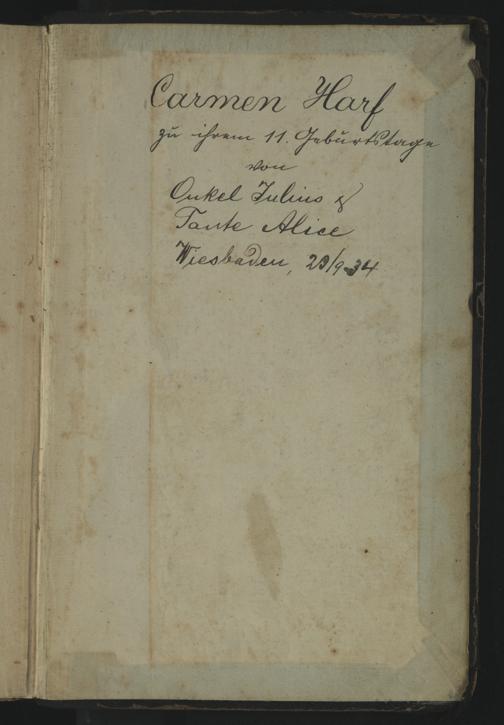 Carmen Harf
zu ihrem 11. Geburtstage
von
Onkel Julius &
Tante Alice
Wiesbaden, 23/9 34